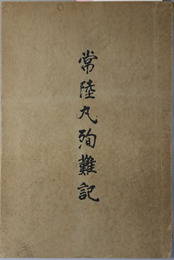 常陸丸殉難記